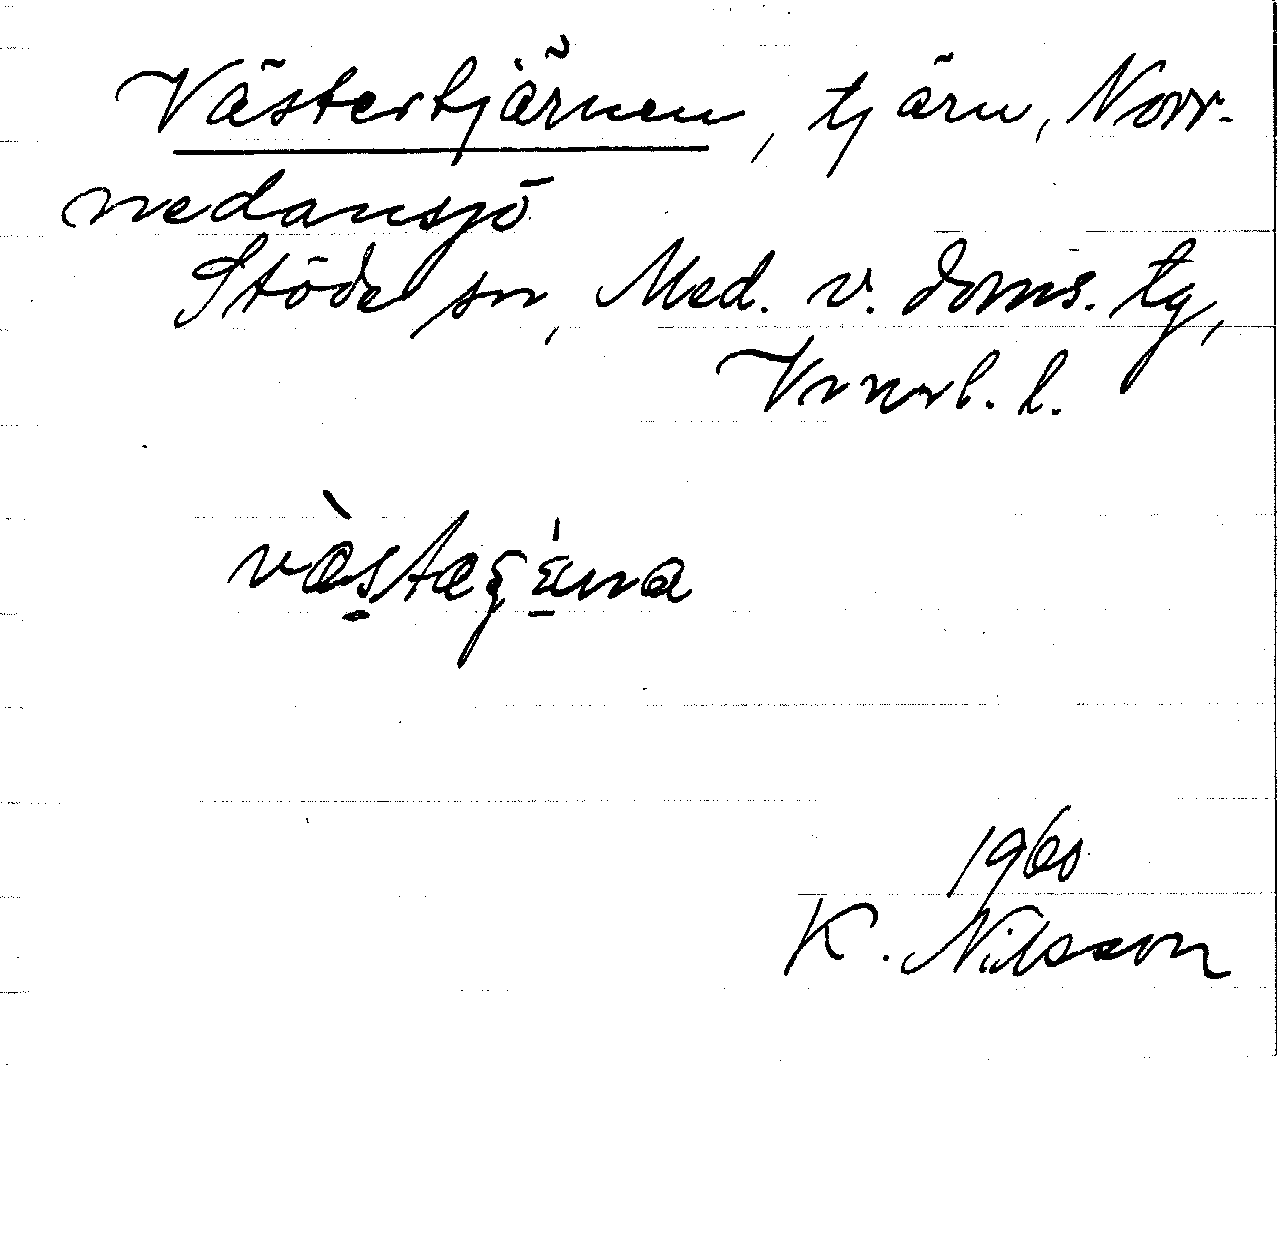 Västertjärnen, tjärn, Norr-
nedansjö
Stöde sn, Med. v. doms. tg,
Vnorl. l.
1960
K. Nilsson